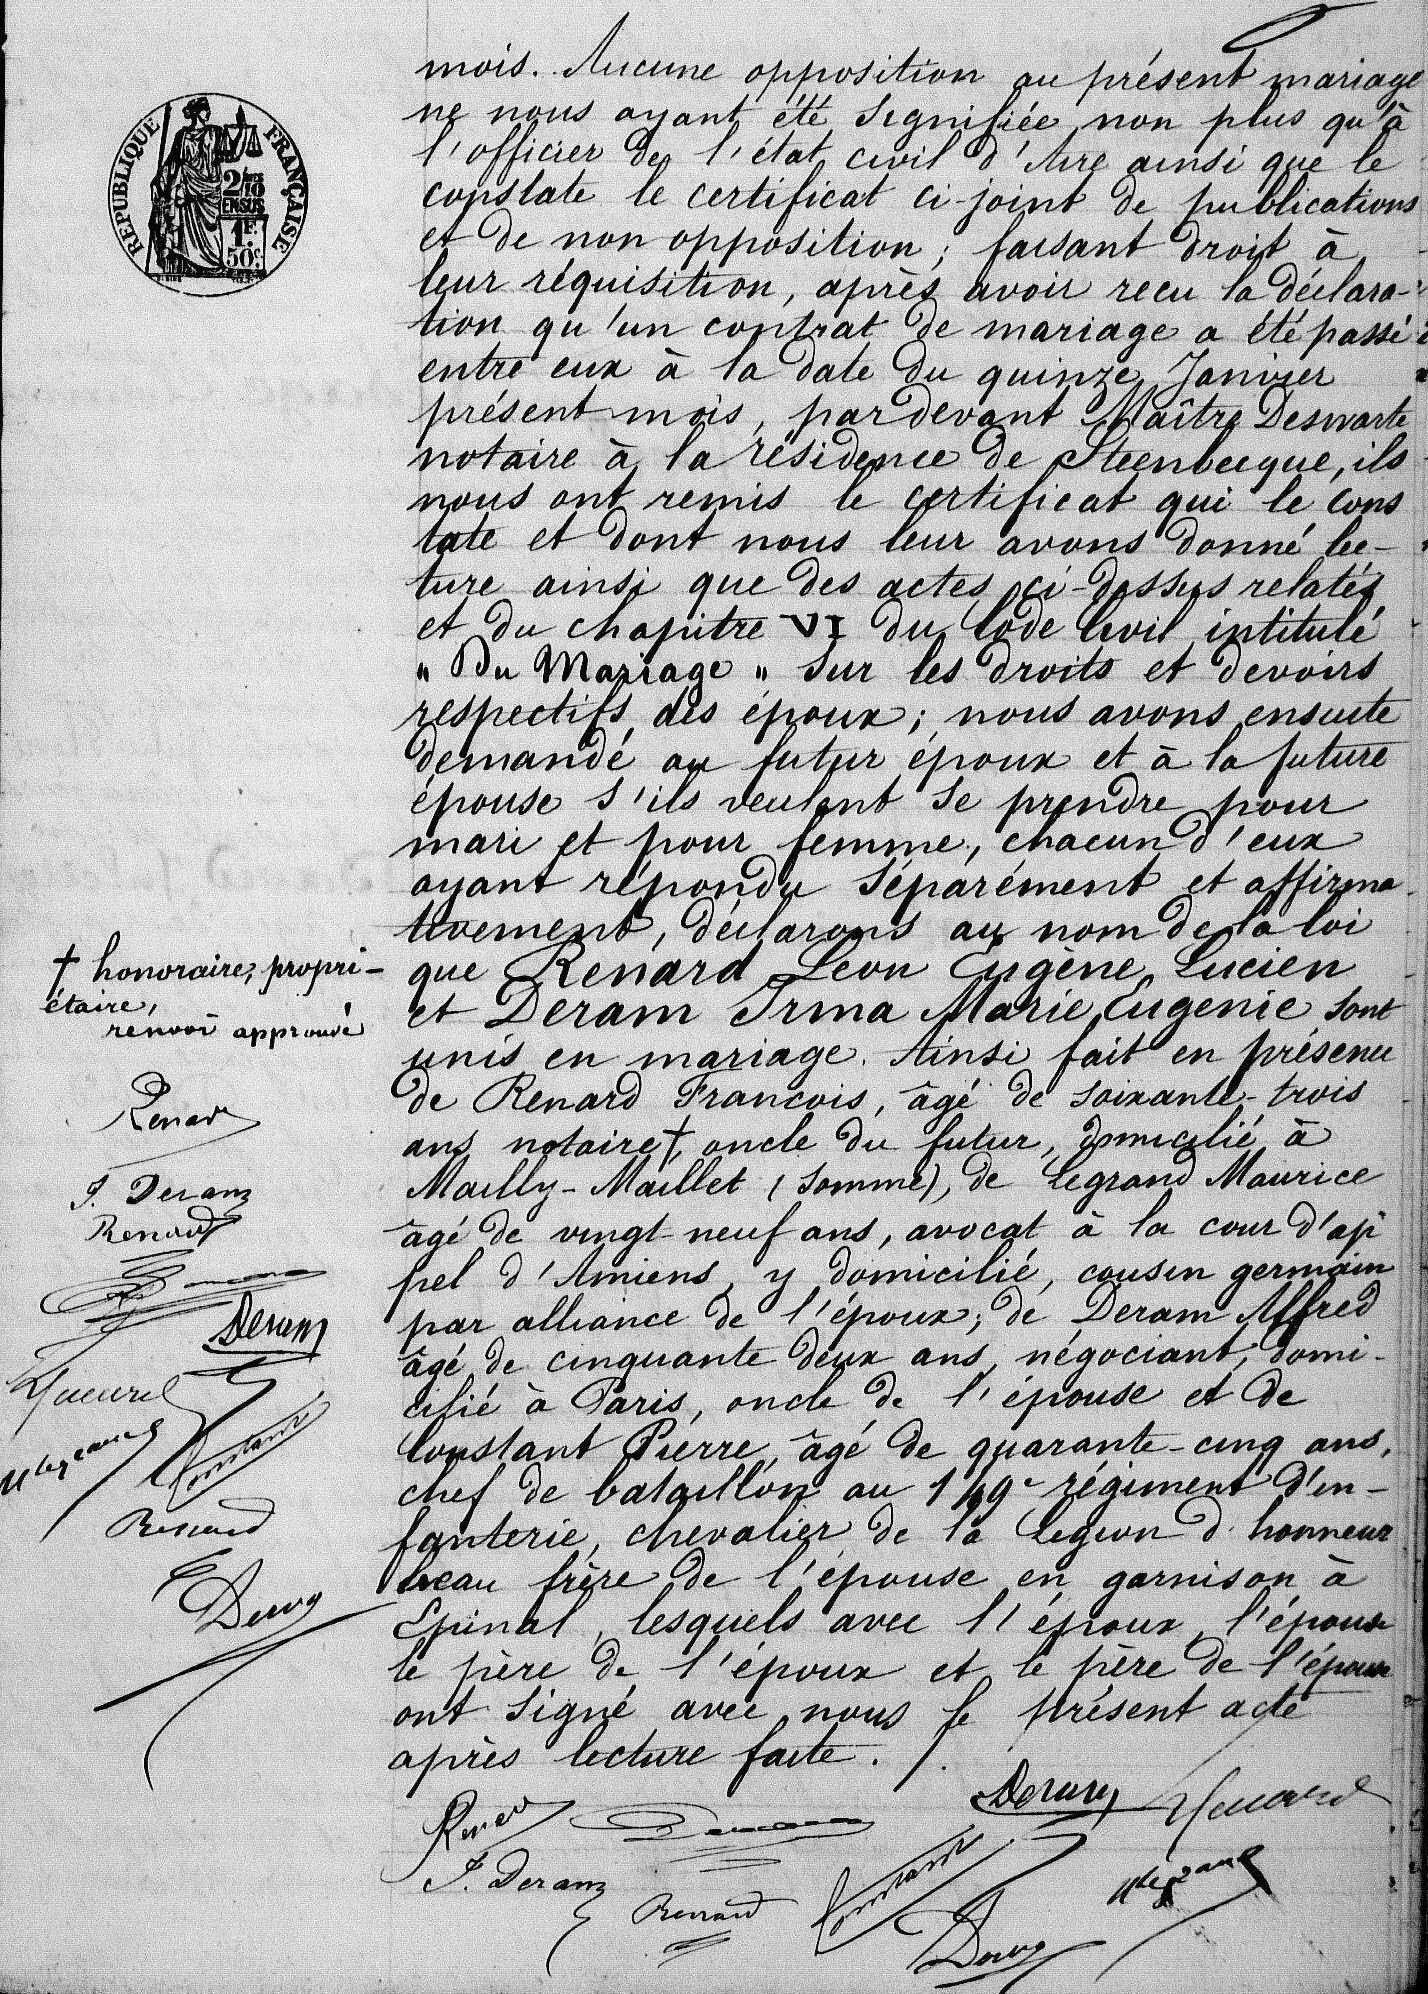 RÉPUBLIQUE FRANÇAISE
2/10
EN SUS
1F.
50c.
mois. Aucune opposition au présent mariage
ne nous ayant été signifiée non plus qu'à
l'officier de l'état civil d'Aire ainsi que le
constate le certificat ci-joint de publications
et de non opposition; faisant droit à
leur réquisition, après avoir recu la déclara-
tion qu'un contrat de mariage a été passé
entre eux à la date du quinze Janvier
présent mois, pardevant Maître Deswarte
notaire à la résidence de Steenbecque, ils
nous ont remis le certificat qui le cons
tate et dont nous leur avons donné lec-
ture ainsi que des actes ci-dessus relatés
et du chapitre VI du Code Civil intitulé
" Du Mariage " sur les droits et devoirs
respectifs des époux; nous avons ensuite
demandé au futur époux et à la future
épouse s'ils veulent se prendre pour
mari et pour femme, chacun d'eux
ayant répondu séparément et affirma-
tivement, déclarons au nom de la loi
que Renard Léon Eugène Lucien
et Deram Irma Marie Eugenie sont
unis en mariage. Ainsi fait en présence
de Renard Francois, âgé de soixante-trois
ans notaire †, oncle du futur, domicilié à
Mailly-Maillet (Somme), de Legrand Maurice
âgé de vingt-neuf ans, avocat à la cour d'ap
pel d'Amiens, y domicilié, cousin germain
par alliance de l'époux; de Deram Alfred
âgé de cinquante deux ans, négociant, domi-
cilié à Paris, oncle de l'épouse et de
Constant Pierre, âgé de quarante-cinq ans,
chef de bataillon au 149e régiment d'in-
fanterie, chevalier de la Legion d'honneur
beau frère de l'épouse en garnison à
Epinal, lesquels avec l'époux, l'épouse
le père de l'époux et le père de l'épouse
ont signé avec nous le présent acte
après lecture faite.
† honoraire, propri-
étaire,
renvoi approuvé
Renard
I. Deram
Renard
Deram
Constant
Renard
Renard
Deram
I. Deram
Renard
Constant